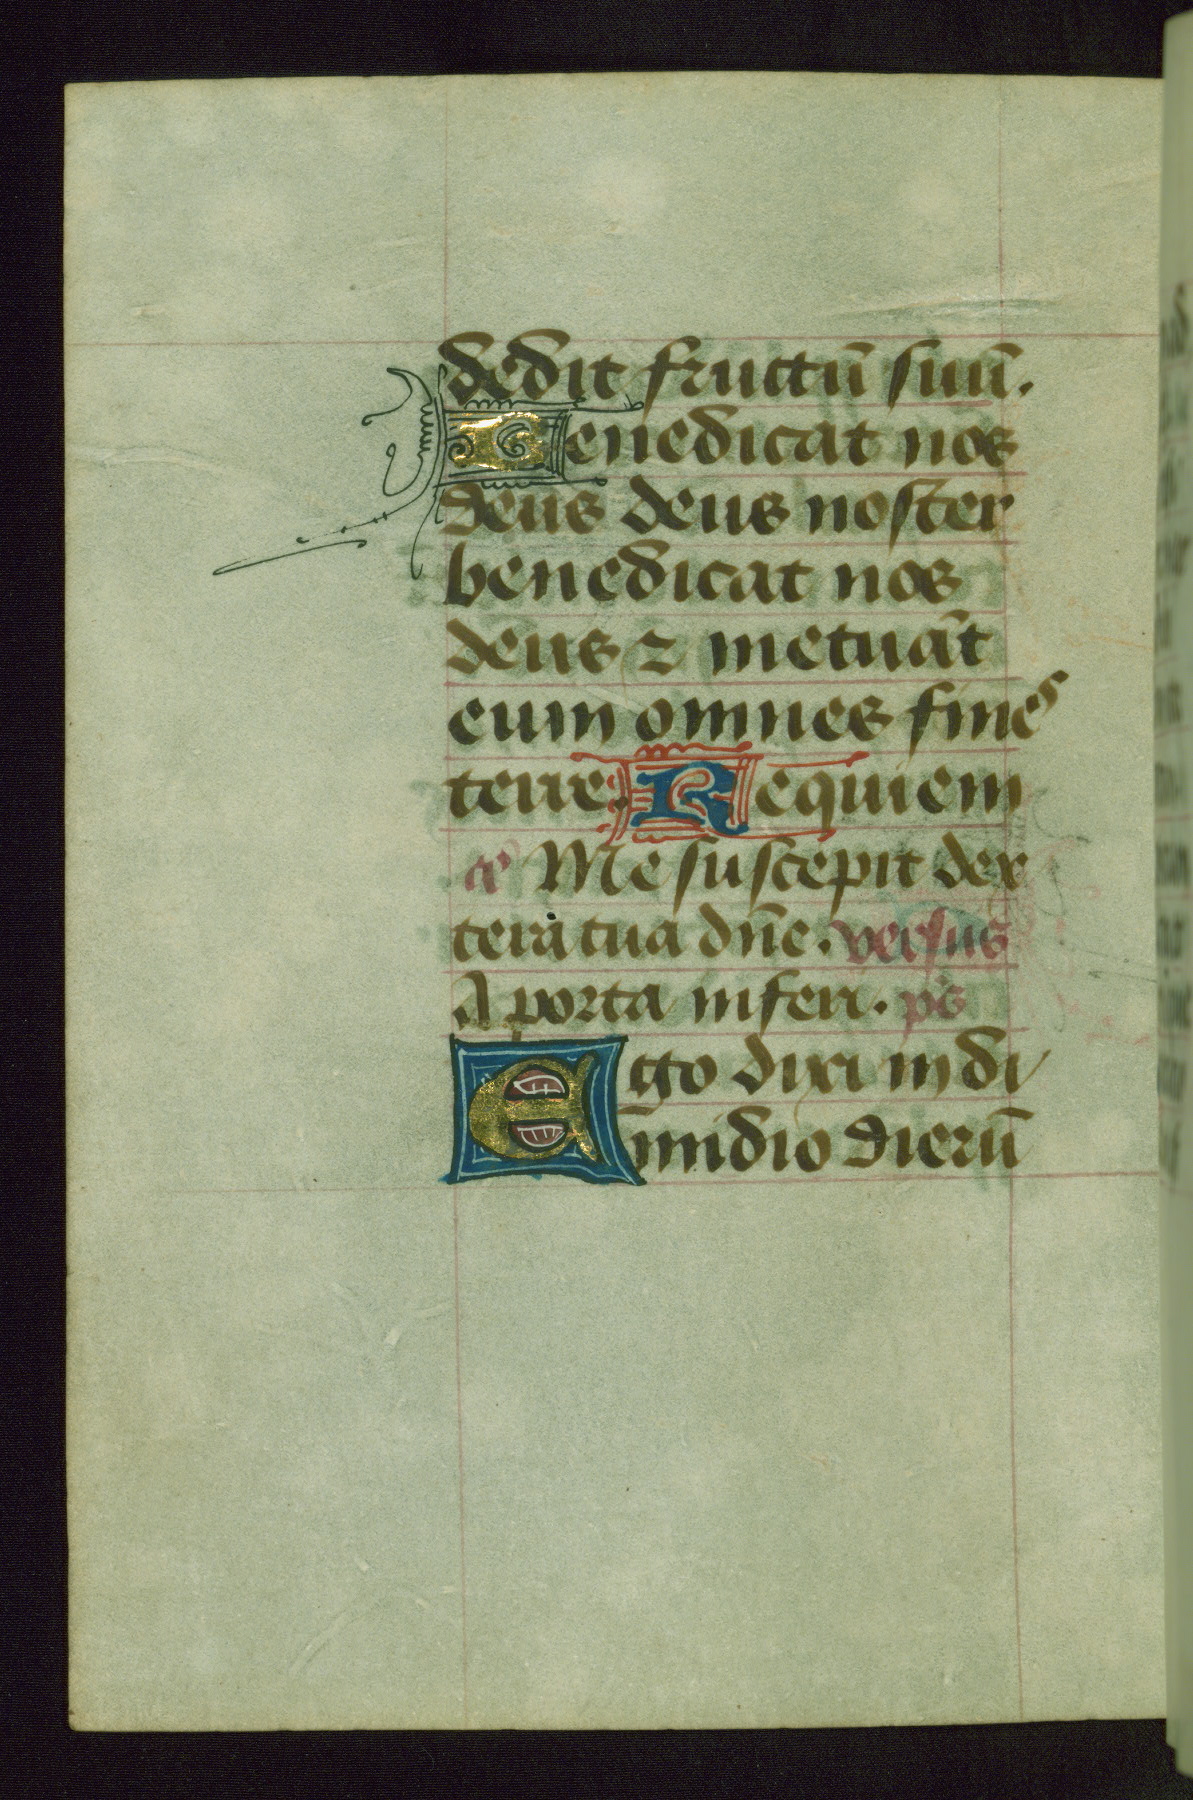 dedit fructū suū.
Benedicat nos
deus deus noster
benedicat nos
deus ⁊ metuāt
eum omnes fines
terre. Requiem
Me suscepit dex
tera tua dn̄e. versus
A porta inferi. ps
Ego dixi in di
midio dierū